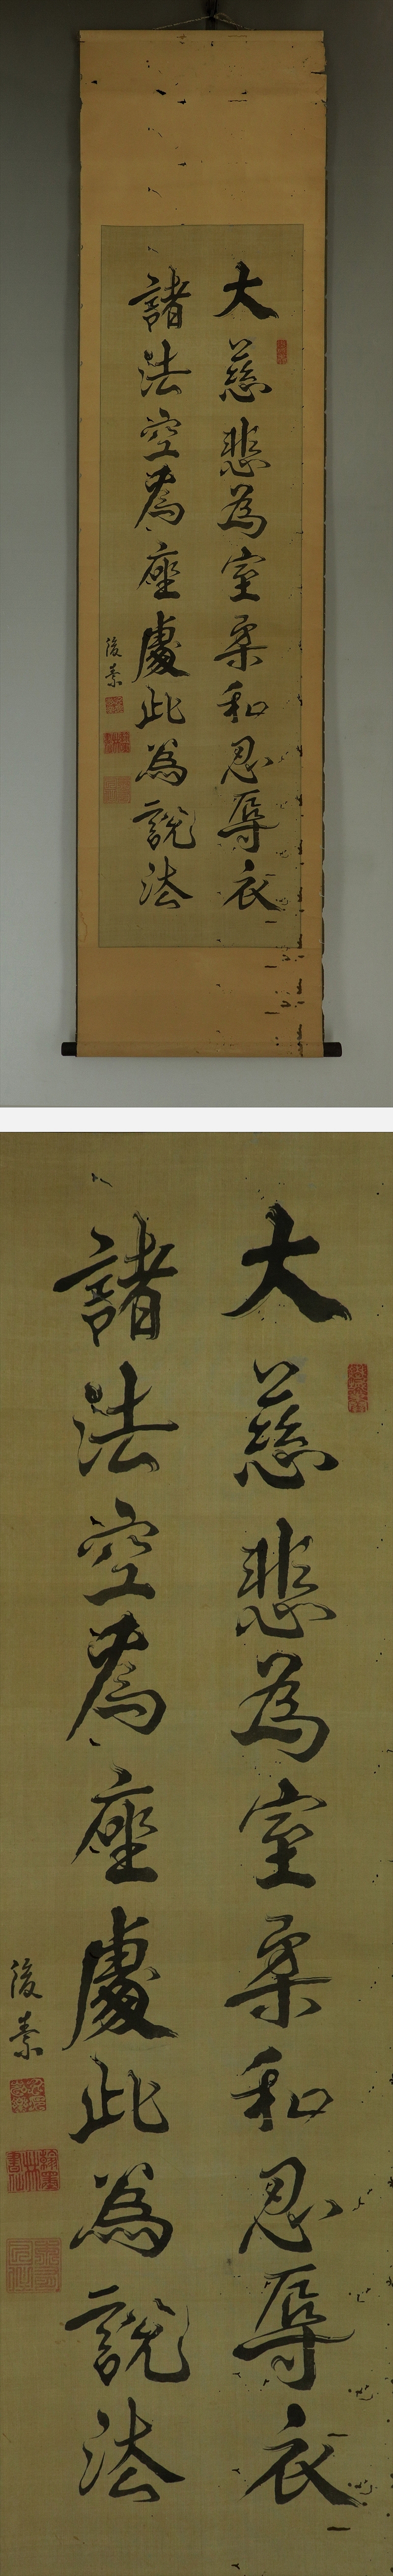 大慈悲為室柔和忍辱衣
諸法空為座處此為說法
後素
大慈悲為室柔和忍辱衣
諸法空為座處此為說法
後素